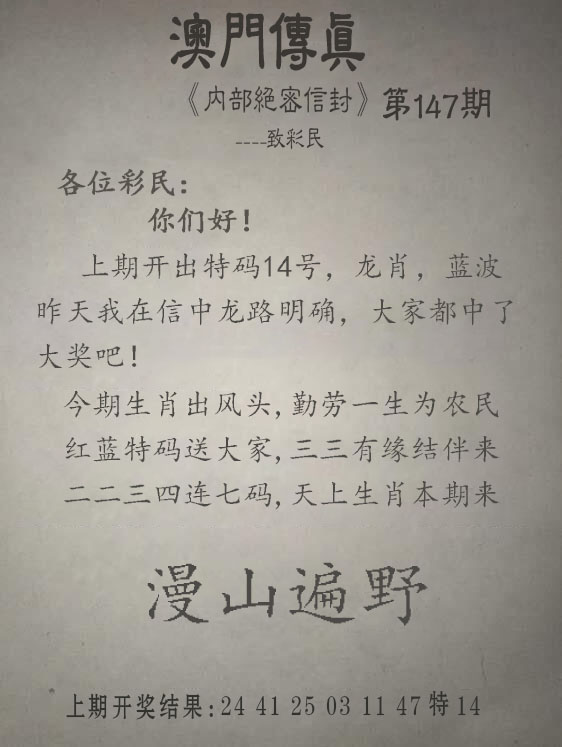 澳門傳眞
《内部絕密信封》第147期
----致彩民
各位彩民：
你们好！
上期开出特码14号，龙肖，蓝波
昨天我在信中龙路明确，大家都中了
大奖吧！
今期生肖出风头,勤劳一生为农民
红蓝特码送大家,三三有缘结伴来
二二三四连七码,天上生肖本期来
漫山遍野
上期开奖结果:24 41 25 03 11 47 特 14